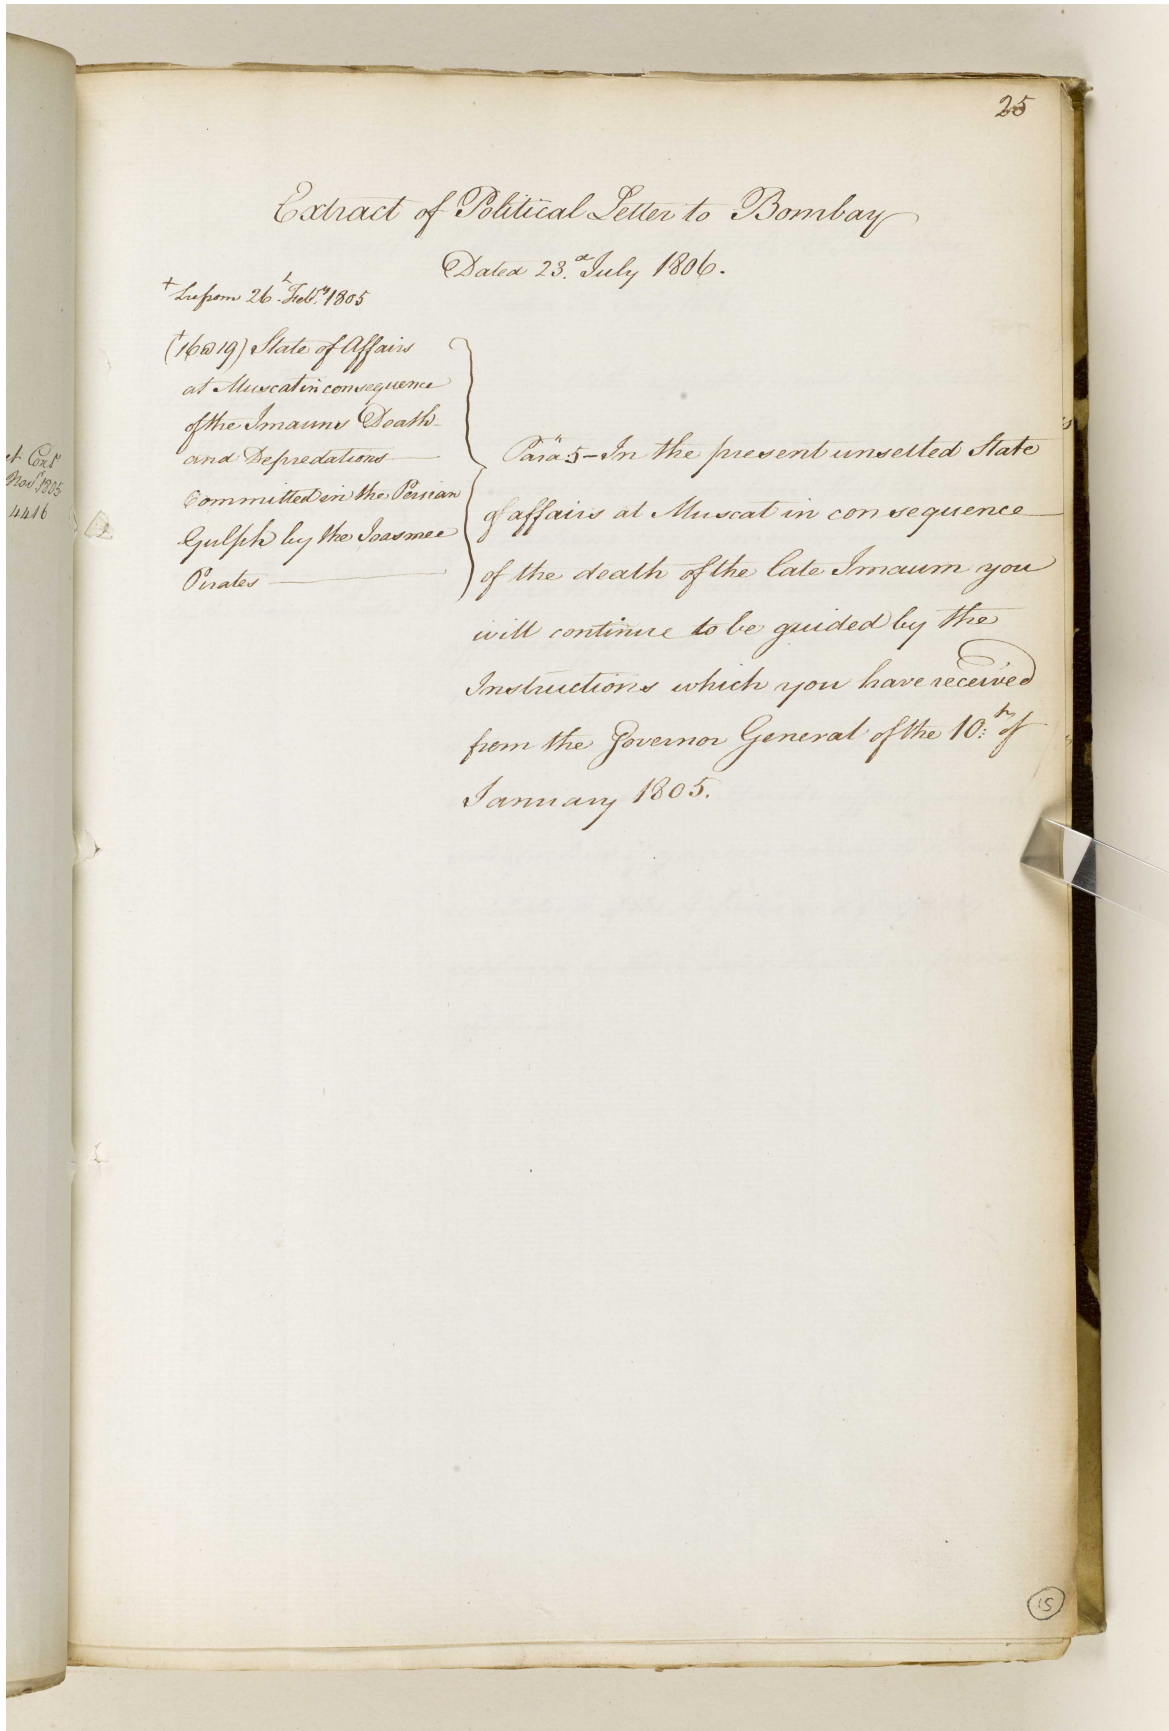 25
Extract of Political Letter to Bombay
Dated 23.d July 1806.
+ Lre from 26.th Feby. 1805
(+16@19) State of Affairs
at Muscat in consequence
of the Imauns Death
and Depredations
Committed in the Persian
Gulph by the Joasmee
Pirates
Para 5 - In the present unsetled State
of affairs at Muscat in consequence
of the death of the late Imaum you
will continue to be guided by the
Instructions which you have received
from the Governor General of the 10:th of
January 1805.
Nov.r 1805
4416
15